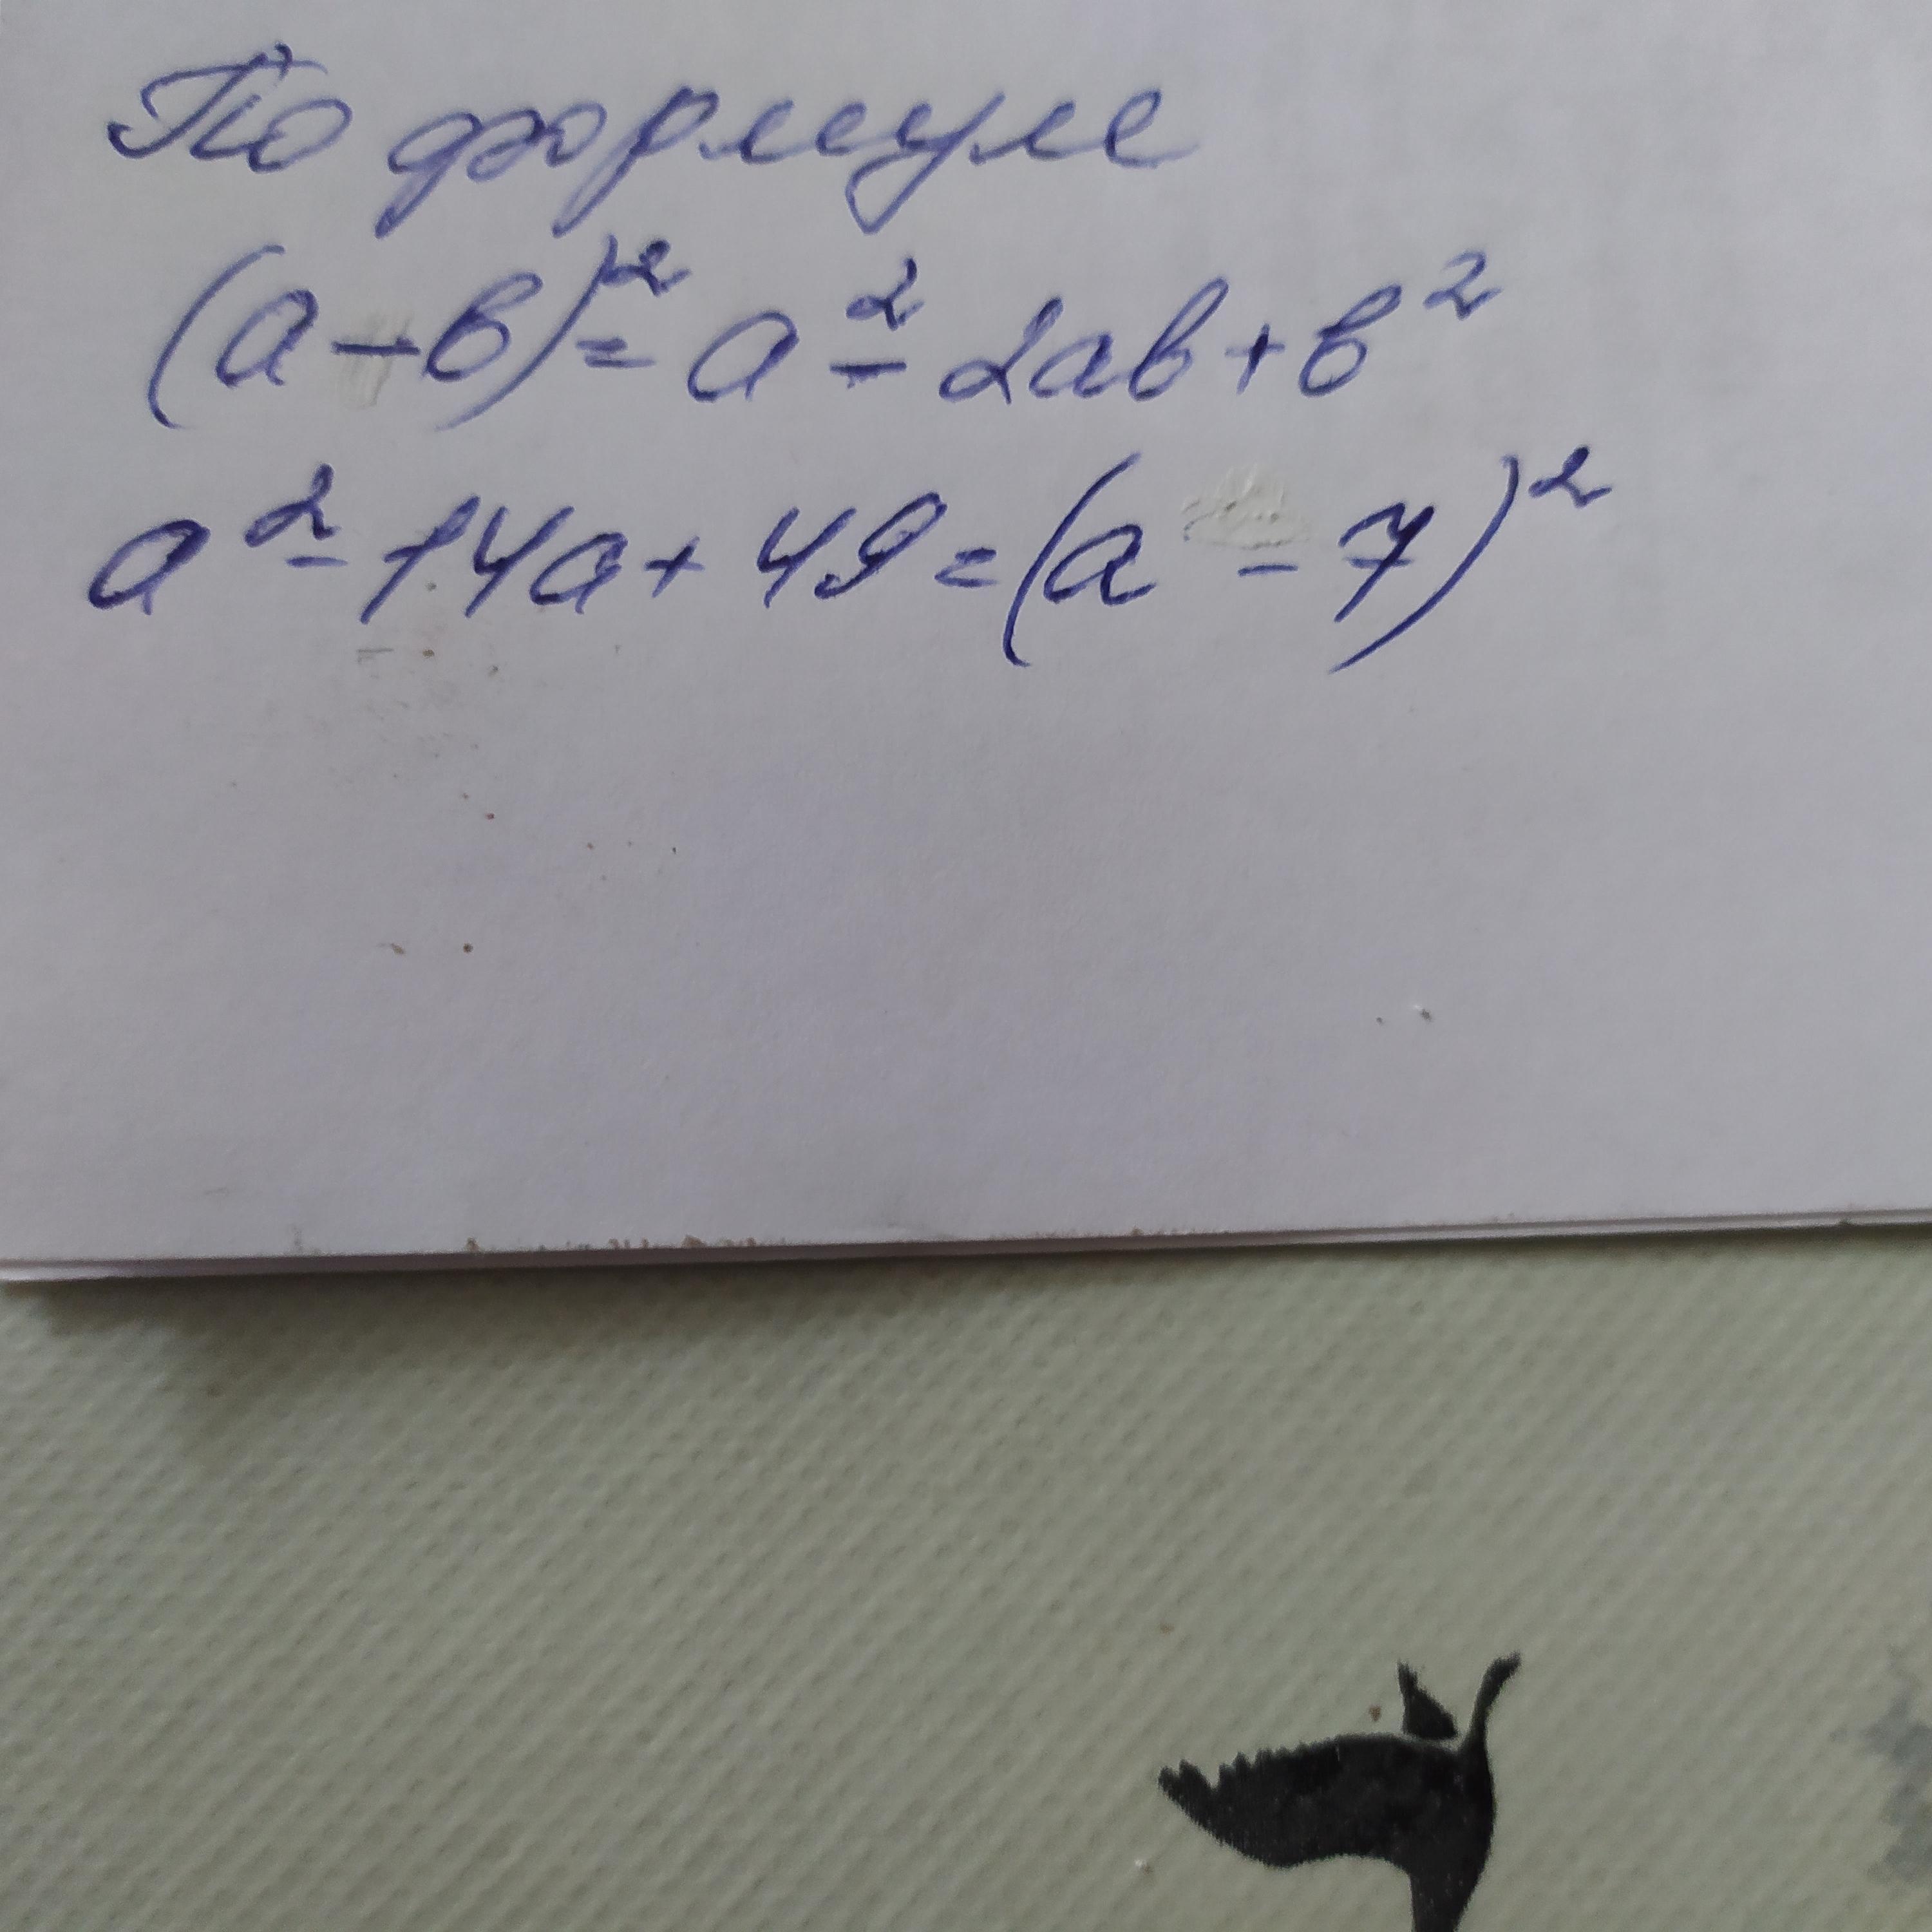 По формуле
(a-в)²=a²-2ав+в²
a²-14a+49=(a-7)²